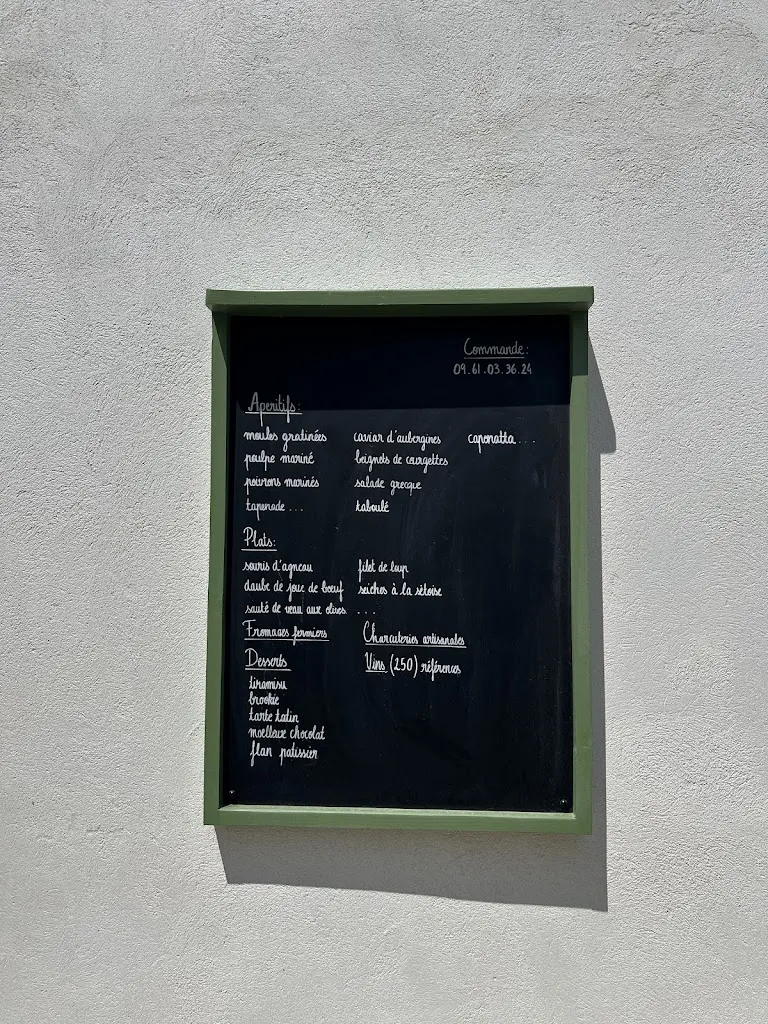 Commande:
09.61.03.36.24
Aperitifs:
moules gratinées caviar d'aubergines caponatta ...
poulpe mariné beignets de courgettes
poivrons marinés salade grecque
tapenade ... taboulé
Plats:
souris d'agneau filet de loup
daube de joue de bœuf seiches à la sétoise
sauté de veau aux olives ...
Fromages fermiers Charcuteries artisanales
Desserts Vins (250) références
tiramisu
brookie
tarte tatin
moelleux chocolat
flan patissier